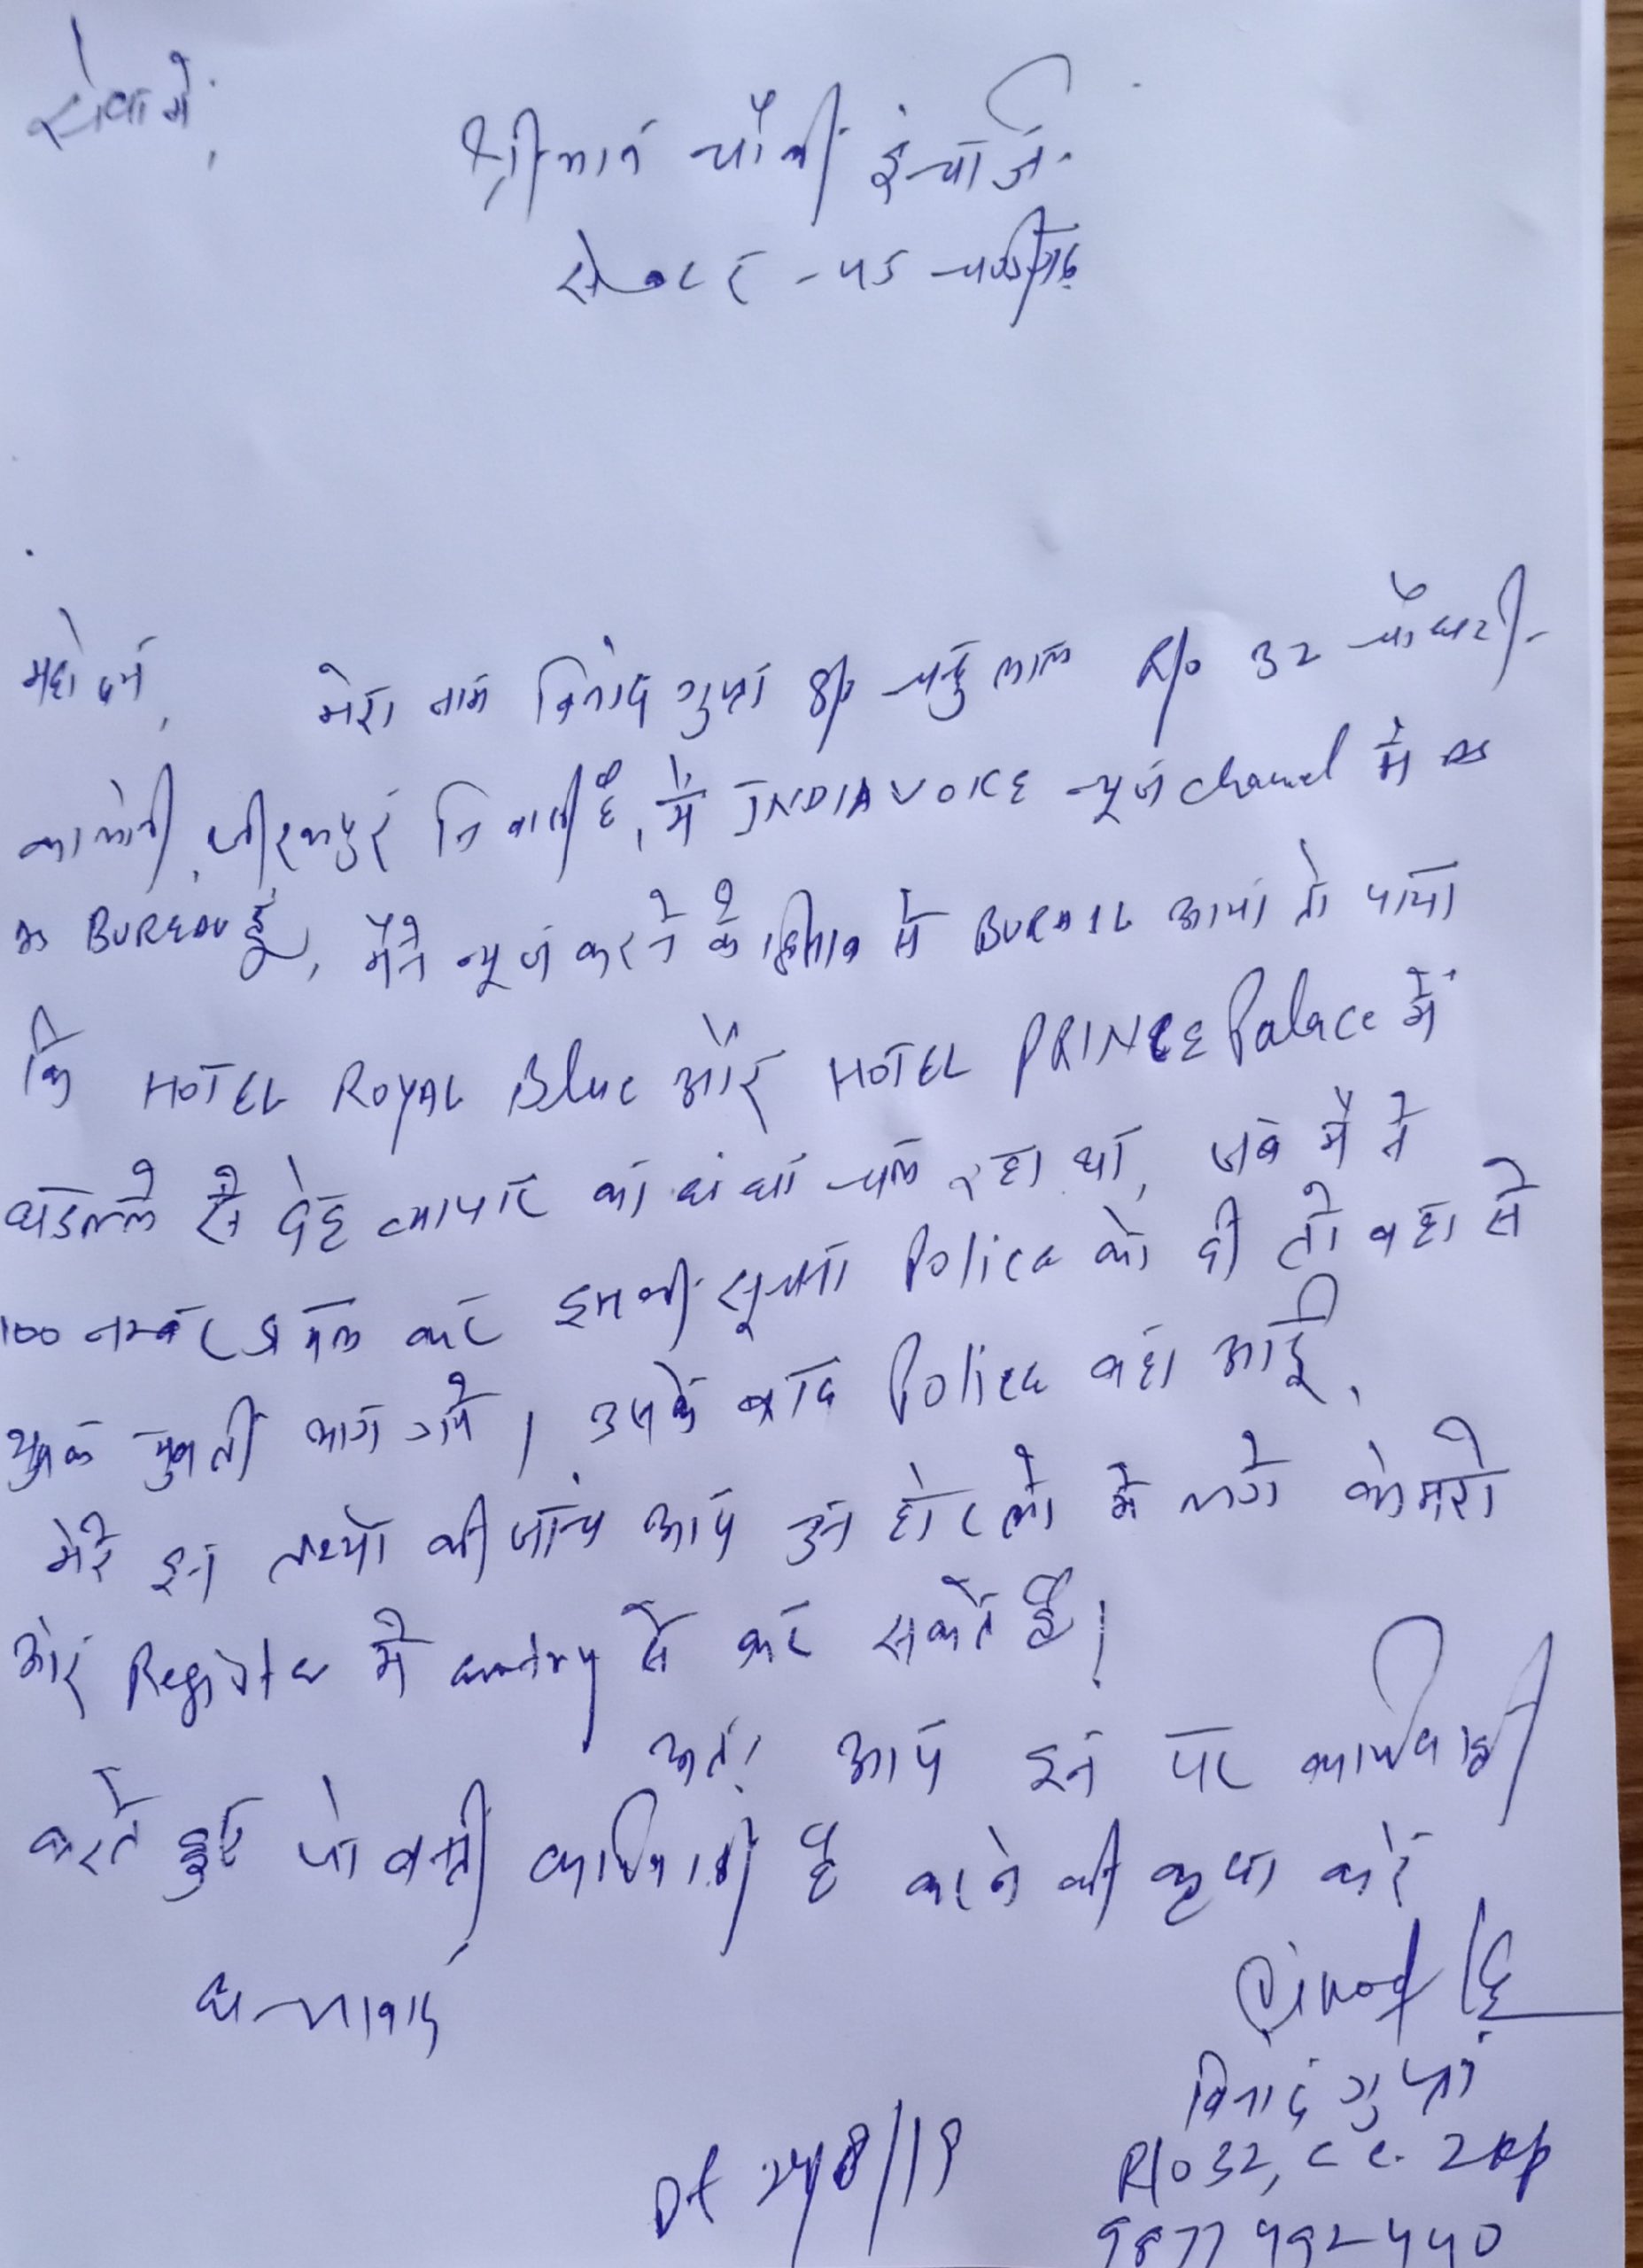 सेवा में,
श्रीमान चौकी इंचार्ज
सेक्टर - 45 चण्डीगढ़
महोदय,
मेरा नाम विनोद गुप्ता S/o लाल R/o 32 चौधरी
कालोनी, जीरकपुर निवासी है, मैं INDIA VOICE न्यूज channel में
BUREAU हूँ, मैने न्यूज करने के हिसाब से BURAIL आया तो पाया
कि HOTEL ROYAL Blue और HOTEL PRINCE Palace में
धडल्ले से देह व्यापार का धंधा चल रहा था, जब मैं ने
100 नम्बर डायल कर इसकी सूचना Police को दी तो वहा से
युवक युवती भाग गये। उसके बाद Police वहां आई,
मेरे इन तथ्यों की जांच आप उन होटलो में लगे कैमरो
और Register में entry से कर सकते है।
अतः आप इन पर कार्यवाही
करते हुए जो बनती कार्यवाही है करने की कृपा करें
धन्यवाद,
Vinod
विनोद गुप्ता
R/o 32, C C. ZKP
Dt 24/8/19
9877992440